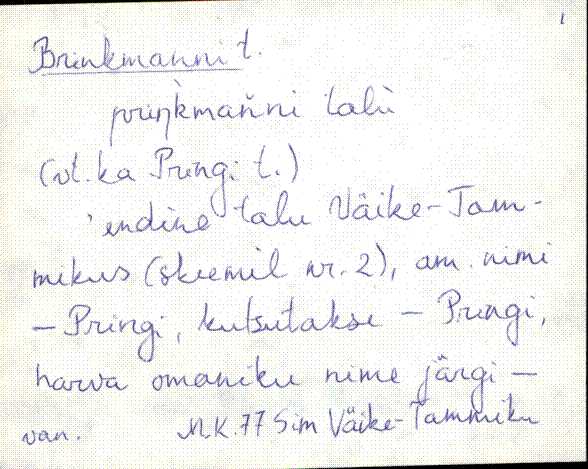 1
Brinkmanni t.
priŋ̀kmańni talù
(vt. ka Pringi t.)
'endine talu Väike-Tam-
mikus (skeemil nr. 2), am. nimi
– Pringi, kutsutakse – Pringi,
harva omaniku nime järgi –
van. M.K. 77 Sim Väike-Tammiku